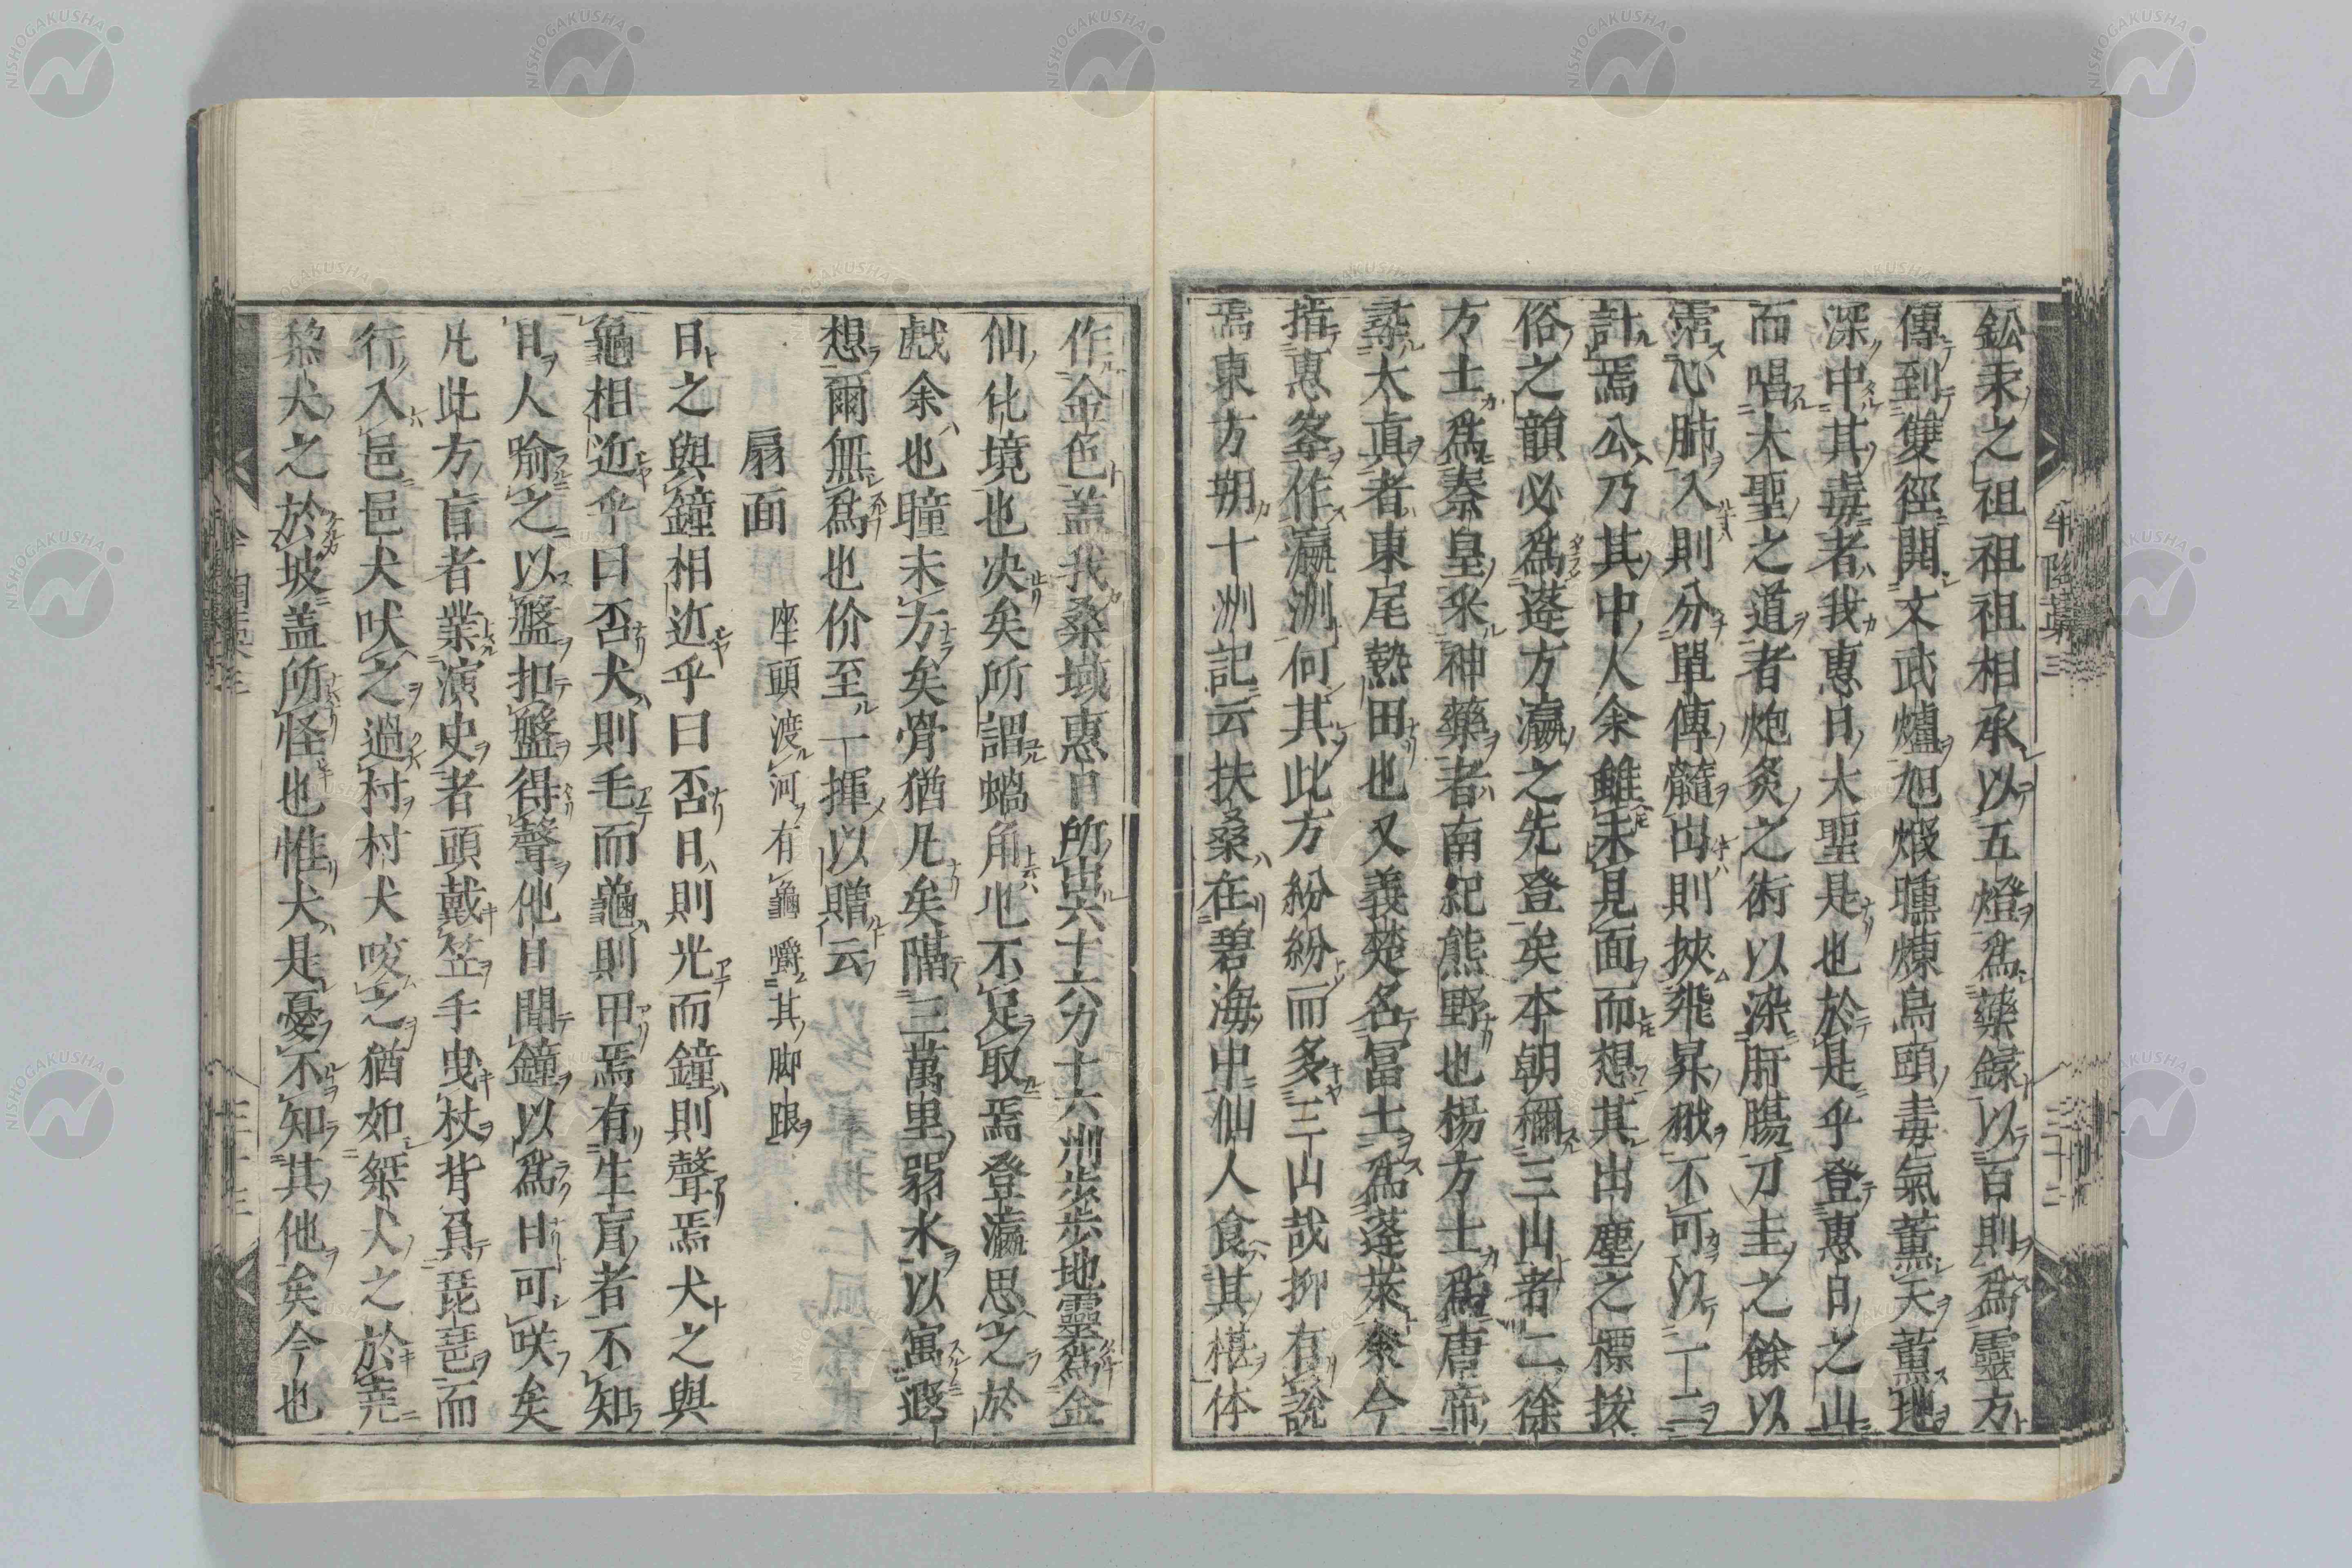 鉛汞之祖祖祖相承以五燈爲藥録以百則爲靈方
傳到雙徑開文武爐旭煅曛煉烏頭毒氣薫天薫地
深中其毒者我惠日大聖是也於是乎登惠日之山
而唱大聖之道者炮灸之術以染肝腸刀圭之餘以
霑心肺入則分單傳髓出則挾飛昇秘不可以一二
計焉公乃其中人余雖未見面而想其出塵之標拔
俗之韻必爲蓬方瀛之先登矣本朝稱三山者二徐
方士爲秦皇釆神藥者南紀熊野也楊方士爲唐帝
尋太眞者東尾熱田也又義楚名冨士爲蓬萊矣今
指惠峯作瀛洲何其此方紛紛而多三山哉抑有說
焉東方朔十洲記云扶桑在碧海中仙人食其椹体
作金色盖我桑域惠日所出六十六刕十六洲歩歩地靈爲金
仙化境也决矣所謂蝸角也不足取焉登瀛思之於
戲余也瞳未方矣骨猶凡矣隔三萬里弱水以寓遐
想爾無爲也价至一揮以贈云
扇面 座頭渡河有龜嚼其脚跟
日之與鐘相近乎曰否日則光而鐘則聲焉犬之與
龜相近乎曰否犬則毛而龜則甲焉有生盲者不知
日人喻之以盤扣盤得聲他日聞鐘以爲日可咲矣
凡此方盲者業演史者頭戴笠手曳杖背負琵琶而
行入邑邑犬吠之過村村犬咬之猶如桀犬之於堯
黎犬之於坡盖所怪也惟犬是憂不知其他矣今也